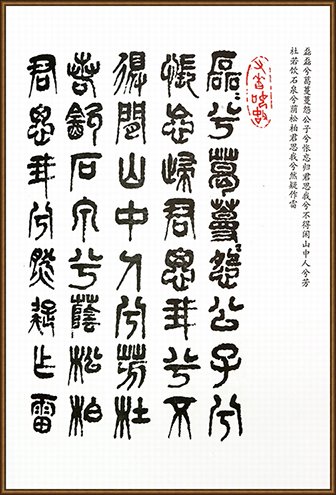 磊磊兮葛蔓蔓怨公子兮怅忘归君思我兮不得闲山中人兮芳
杜若饮石泉兮荫松柏君思我兮然疑作雷
磊〻兮葛蔓〻怨公子兮
悵忘歸君思我兮不
得閒山中人兮芳杜
若飲石泉兮蔭松柏
君思我兮然疑作雷